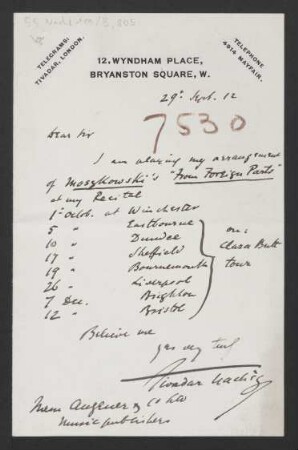 TELEGRAMS:
TIVADAR, LONDON.
TELEPHONE
4914 MAYFAIR.
12, WYNDHAM PLACE,
BRYANSTON SQUARE, W.
29th Sept. 12
7530
Dear Sir
I am playing my arrangement
of Moszkowski's "From Foreign Parts"
at my Recital
1st Octob. at Winchester
5 " Eastbourne
10 " Dundee
17 " Sheffield
19 " Bournemouth
26 " Liverpool
7 Dec. Brighton
12 " Bristol
on:
Clara Butt
tour
Believe me
yrs very truly
Tivadar Nachèz
Messrs Augener & Co Ltd
Music publishers